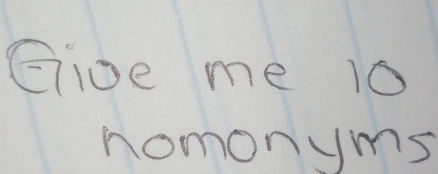 Give me 10
homonyms